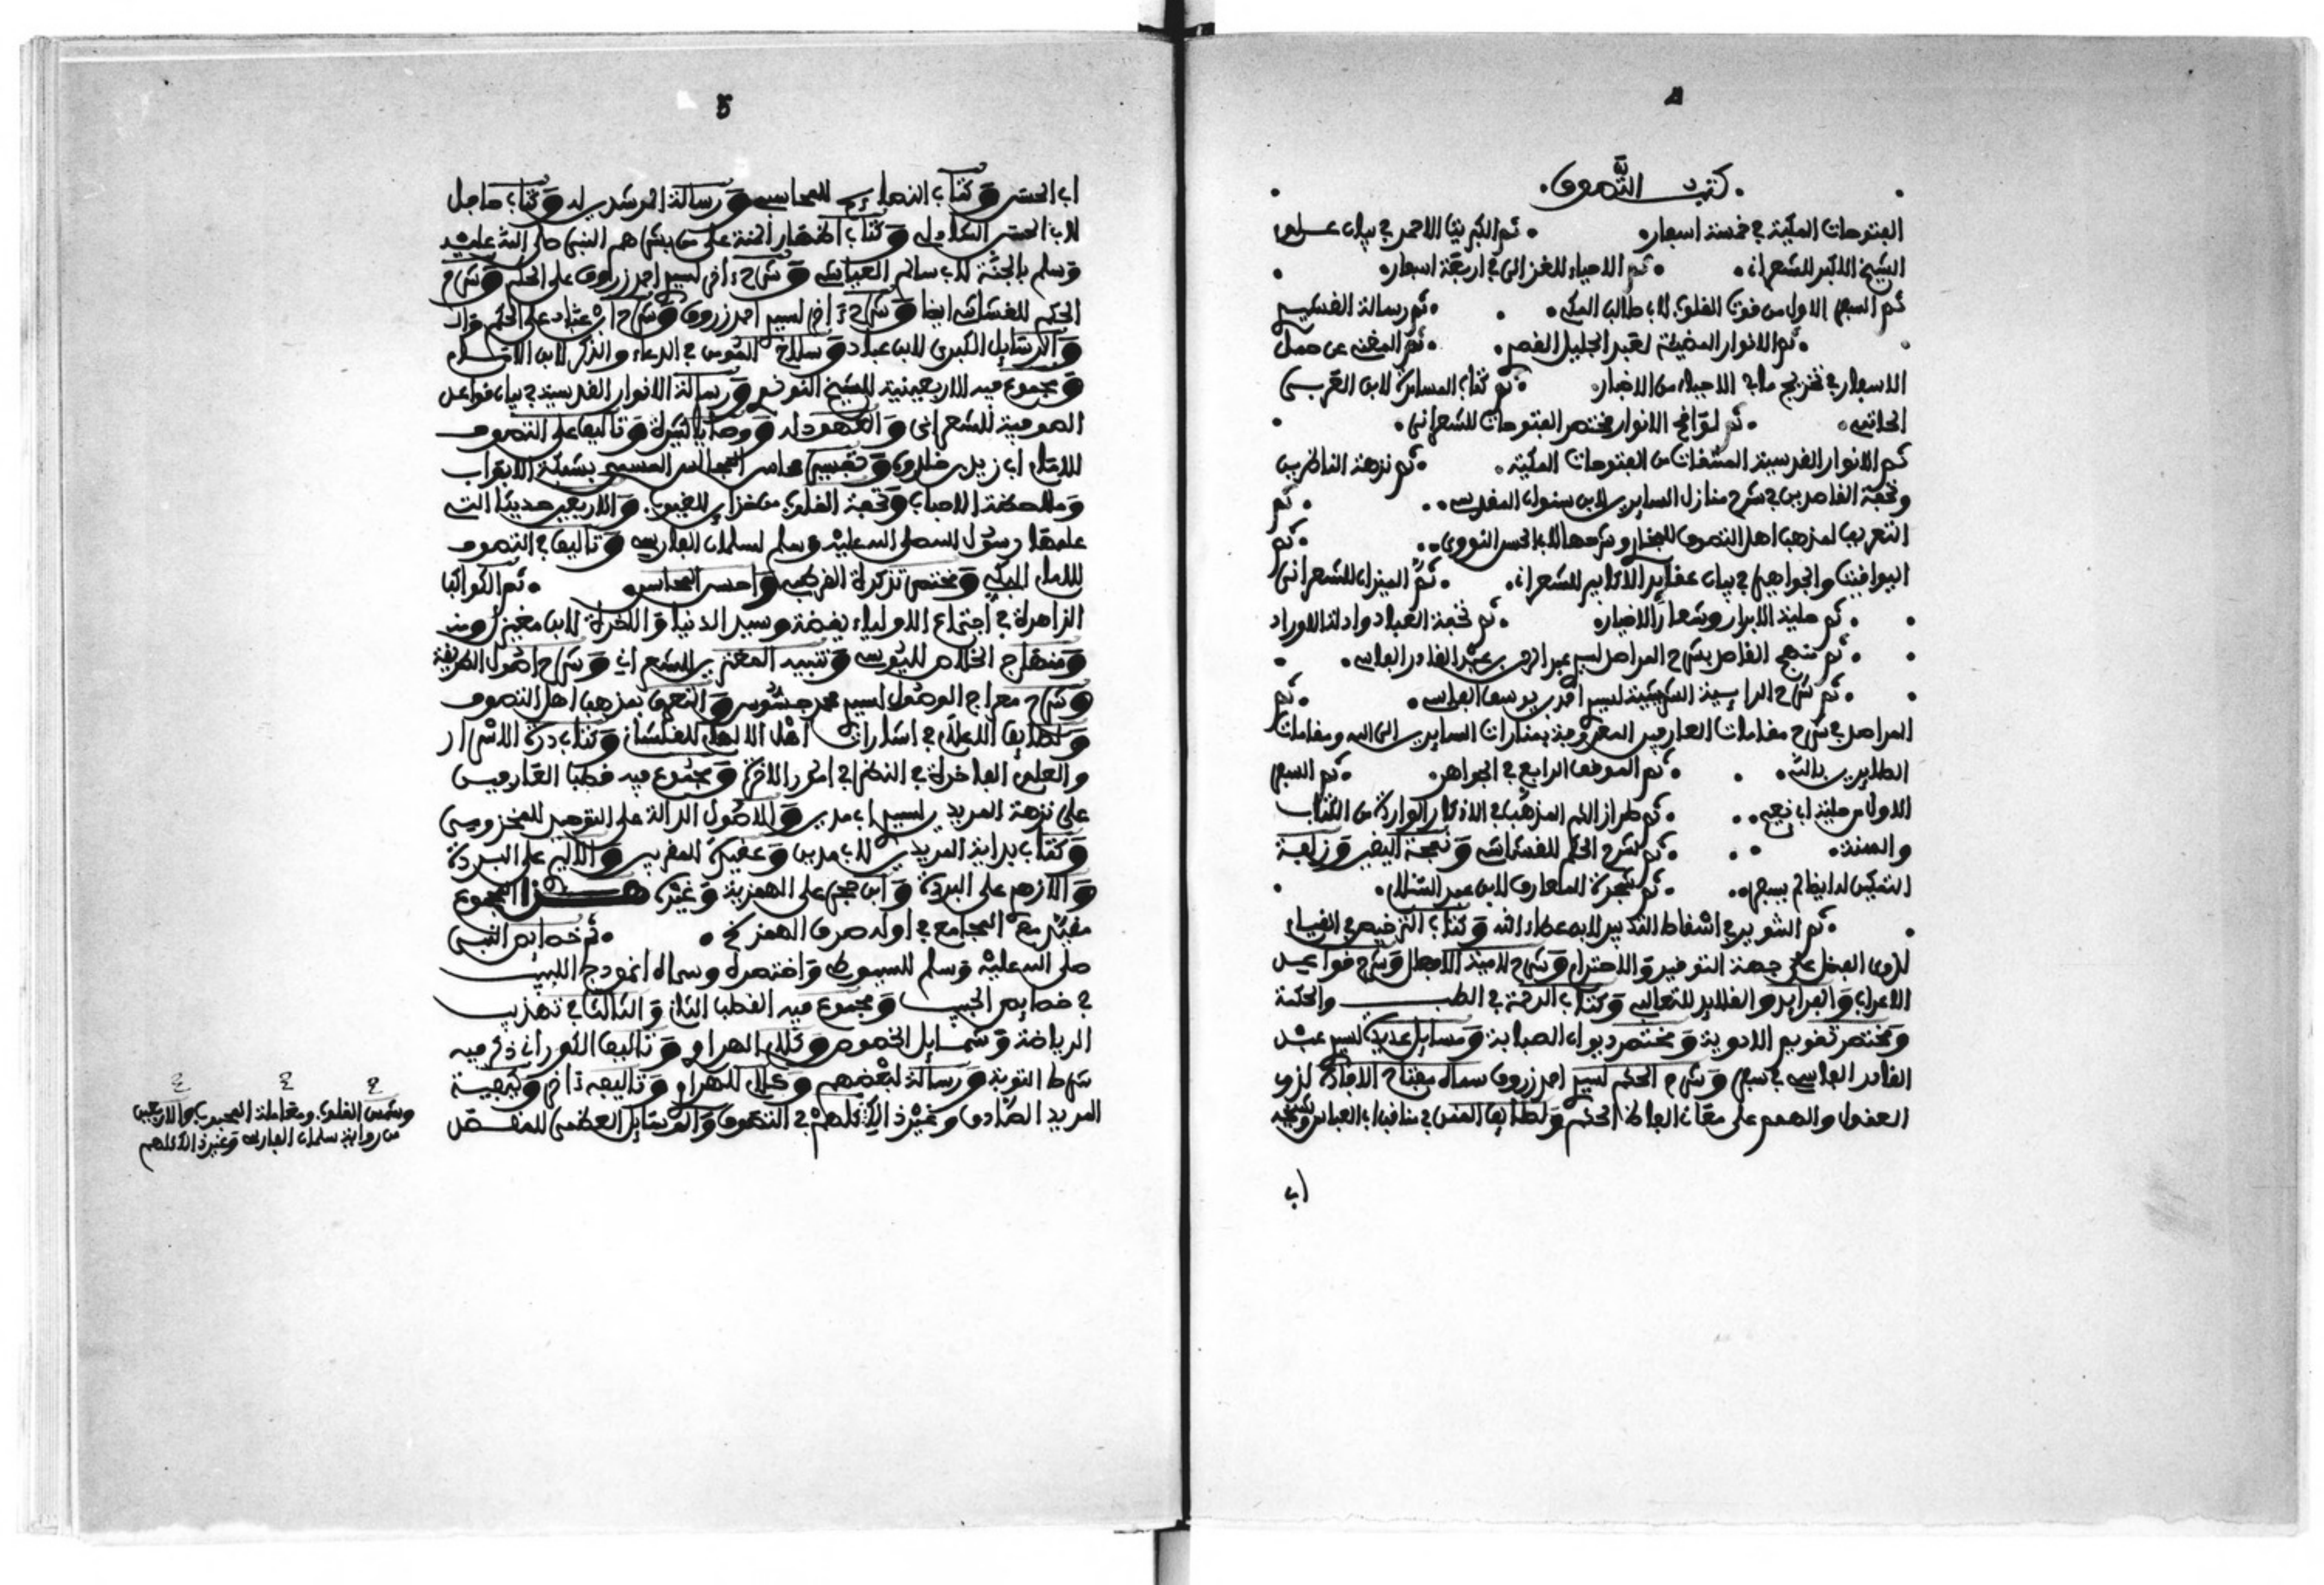 كتب التَّصوف
الفتوحات المكية في خمسة اسفار ثم الكبريت الاحمر في بيان علوم
الشيخ الاكبر للشعراني ثم الاحياء للغزالي في اربعة اسفار
ثم السفر الاول من قوت القلوب لابي طالب المكي ثم رسالة القشيري
ثم الانوار المضيئة لعبد الجليل القصر ثم المغني عن حمل
الاسفار في تخريج ما في الاحياء من الاخبار ثم كتاب المسامرة لابن العربي
الحاتمي ثم لواقح الانوار مختصر الفتوحات للشعراني
ثم الانوار القدسية المنتقات من الفتوحات المكية ثم نزهة الناظرين
وتحفة القاصدين في شرح منازل السايرين لابن المقدسي ثم
التعريف لمذهب اهل التصوف وشرحها لابي الحسن النووي ثم
اليواقيت والجواهر في بيان عقايد الاكابر للشعراني ثم الميزان للشعراني
ثم حلية الابرار وشعار الاخيار ثم تحفة العباد وادلة الاوراد
ثم منهج القاصد بشرح المراصد لسيدي عبد الرحمن بن عبد القادر الفاسي
ثم شرح الرايية الشريشية لسيدي احمد بن يوسف الفاسي ثم
المراصد في شرح مقامات العارفين المعروفة بمنارات السايرين الى الله ومقامات
الطايرين بالله ثم الموقف الرابع في الجواهر ثم السفر
الاول من حلية ابي نعيم ثم طراز الكم المذهب في الاذكار الواردة من الكتاب
والسنة ثم شرح الحكم للقشاشي وَنفحة اليقين وَزلفة
التمكين له ايضا في سفر ثم شجرة المعارف لابن عبد السلام
ثم التنوير في اسقاط التدبير لابن عطاء الله وَكتاب الترخيص في القيام
لذوي الفضل على جهة التوقير وَالاحترام وَشرح لامية الافعال وَشرح قواعد
الاعراب وَالفرايد والقلايد للثعالبي وَكتاب الرحمة في الطب والحكمة
وَمختصر تقويم الادوية وَمختصر ديوان الصبابة وَمسايل عديدة لسيدي عبد
القادر الفاسي في سفر وَشرح الحكم لسيدي احمد زروق سماه مفتاح الافادة لذوي
العقول والهمم على معاني الفاظ الحكم وَلطايف المنن في مناقب ابي العباس وشيخه
ابي
5
ابي الحسن وَكتاب النصايح للمحاسبي وَرسالة المرشدين له وَكتاب
لابي الحسن وَكتاب اظهار المنة على من بشرهم النبي صلى الله عليه
وَسلم بالجنة لابي سالم العياشي وَشرح ءاخر لسيدي احمد زروق على الحكم وَشرح
الحكم للقشاشي ايضا وَشرح ءاخر لسيدي احمد زروق وَشرح ابن عباد على الحكم
وَالرسايل الكبرى لابن عباد وَسلاح المومن في الدعاء والذكر لابن الامام
وَمجموع فيه الاربعينية للشيخ وَرسالة الانوار القدسية في بيان قواعد
الصوفية للشعراني وَالعهود له وَوصايا وَتاليف على التصوف
للامام ابي زيد بن خلدون وَتفسير محاسن المجالس المسمى
وَملاحظة الاحباب وَتحفة القلوب من خزاين الغيوب وَالاربعين حديثا التي
علمها رسول الله صلى الله عليه وسلم لسلمان الفارسي وَتاليف في التصوف
للامام المكي وَمختصر تذكرة القرطبي وَاحسن المحاسن ثم الكواكب
الزاهرة في اجتماع الاولياء يقظة وسيد الدنيا وَالاخرة لابن مغيزل
وَمنهاج الخلاص لليوسي وَتنبيه المغترين للشعراني وَشرح اصول الطريقة
وَشرح معراج الوصول لسيدي محمد جسوس وَالتعرف بمذهب اهل التصوف
وَلطايف الاعلام في اشارات اهل الالهام للقشاني وَكتاب درة الاسرار
والعلوم الفاخرة في النظر في امور الاخرة وَمجموع فيه قطب العارفين
على نزهة المريدين لسيدي ابي مدين وَالاصول الدالة على التوحيد للمخزومي
وَكتاب بداية المريدين لابي مدين وَعقيدة المغربي وَالاليري على البردة
وَالازهري على البردة وَابن حجر على الهمزية وَغيره هذا المجموع
مقيد مع المجامع في اوله حرف الهمز ثم خصايص النبي
صلى الله عليه وَسلم للسيوطي وَاختصره وسماه انموذج اللبيب
في خصايص الحبيب وَمجموع فيه القطب الثاني وَالثالث في تهذيب
الرياضة وَشمايل الخصوص وَتاليف الكوراني ذكر فيه
شرط التوبة وَرسالة لبعضهم وَتاليف ءاخر وَكيفية
المريد الصادق وَغير ذالك كلهم في التصوف وَالرسايل العظمى للمفضل
وشمس القلوب ومعاملة المحبوب والاربعين
من رواية سلمان الفارسي وَغير ذالك كلهم